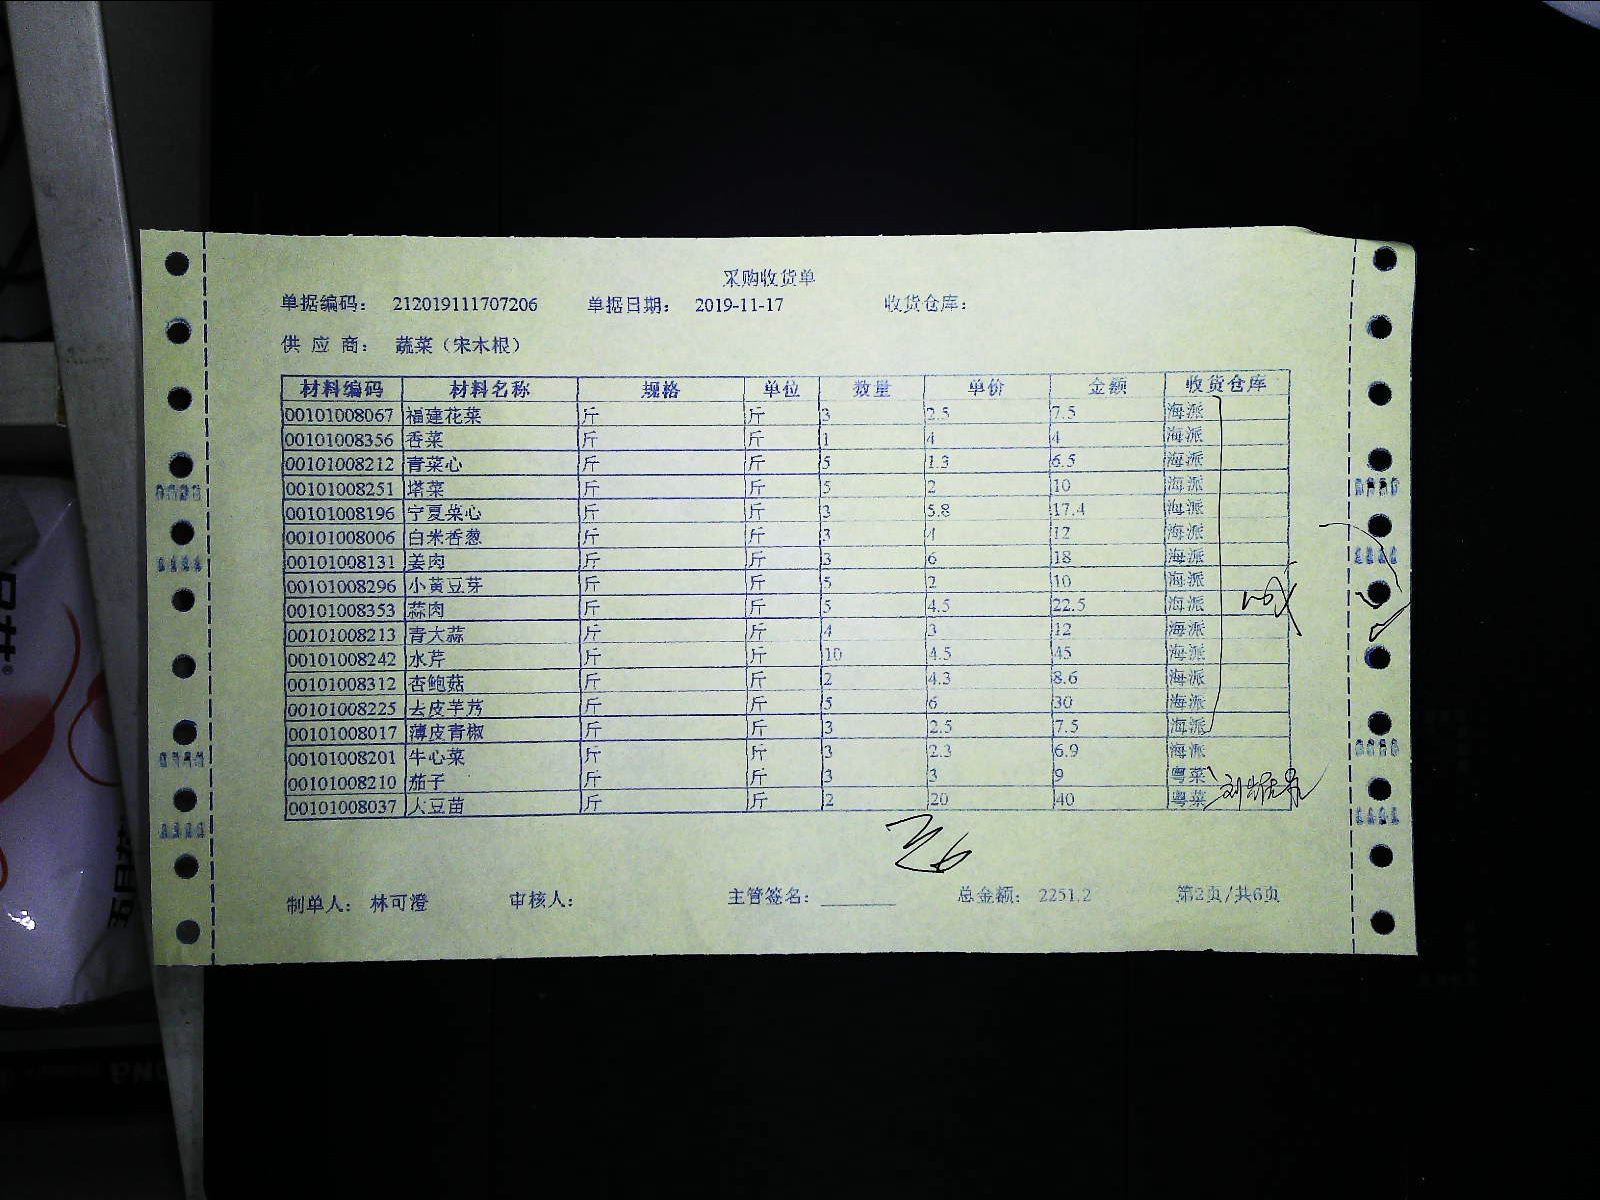 采购收货单
单据编码： 212019111707206 单据日期： 2019-11-17 收货仓库：
供 应 商： 蔬菜（宋木根）
材料编码 材料名称 规格 单位 数量 单价 金额 收货仓库
00101008067 福建花菜 斤 斤 3 2.5 7.5 海派
00101008356 香菜 斤 斤 1 4 4 海派
00101008212 青菜心 斤 斤 5 1.3 6.5 海派
00101008251 塔菜 斤 斤 5 2 10 海派
00101008196 宁夏菜心 斤 斤 3 5.8 17.4 海派
00101008006 白米香葱 斤 斤 3 4 12 海派
00101008131 姜肉 斤 斤 3 6 18 海派
00101008296 小黄豆芽 斤 斤 5 2 10 海派
00101008353 蒜肉 斤 斤 5 4.5 22.5 海派
00101008213 青大蒜 斤 斤 4 3 12 海派
00101008242 水芹 斤 斤 10 4.5 45 海派
00101008312 杏鲍菇 斤 斤 2 4.3 8.6 海派
00101008225 去皮芋艿 斤 斤 5 6 30 海派
00101008017 薄皮青椒 斤 斤 3 2.5 7.5 海派
00101008201 牛心菜 斤 斤 3 2.3 6.9 海派
00101008210 茄子 斤 斤 3 3 9 粤菜
00101008037 大豆苗 斤 斤 2 20 40 粤菜
制单人： 林可澄 审核人： 主管签名： 总金额： 2251.2 第2页/共6页